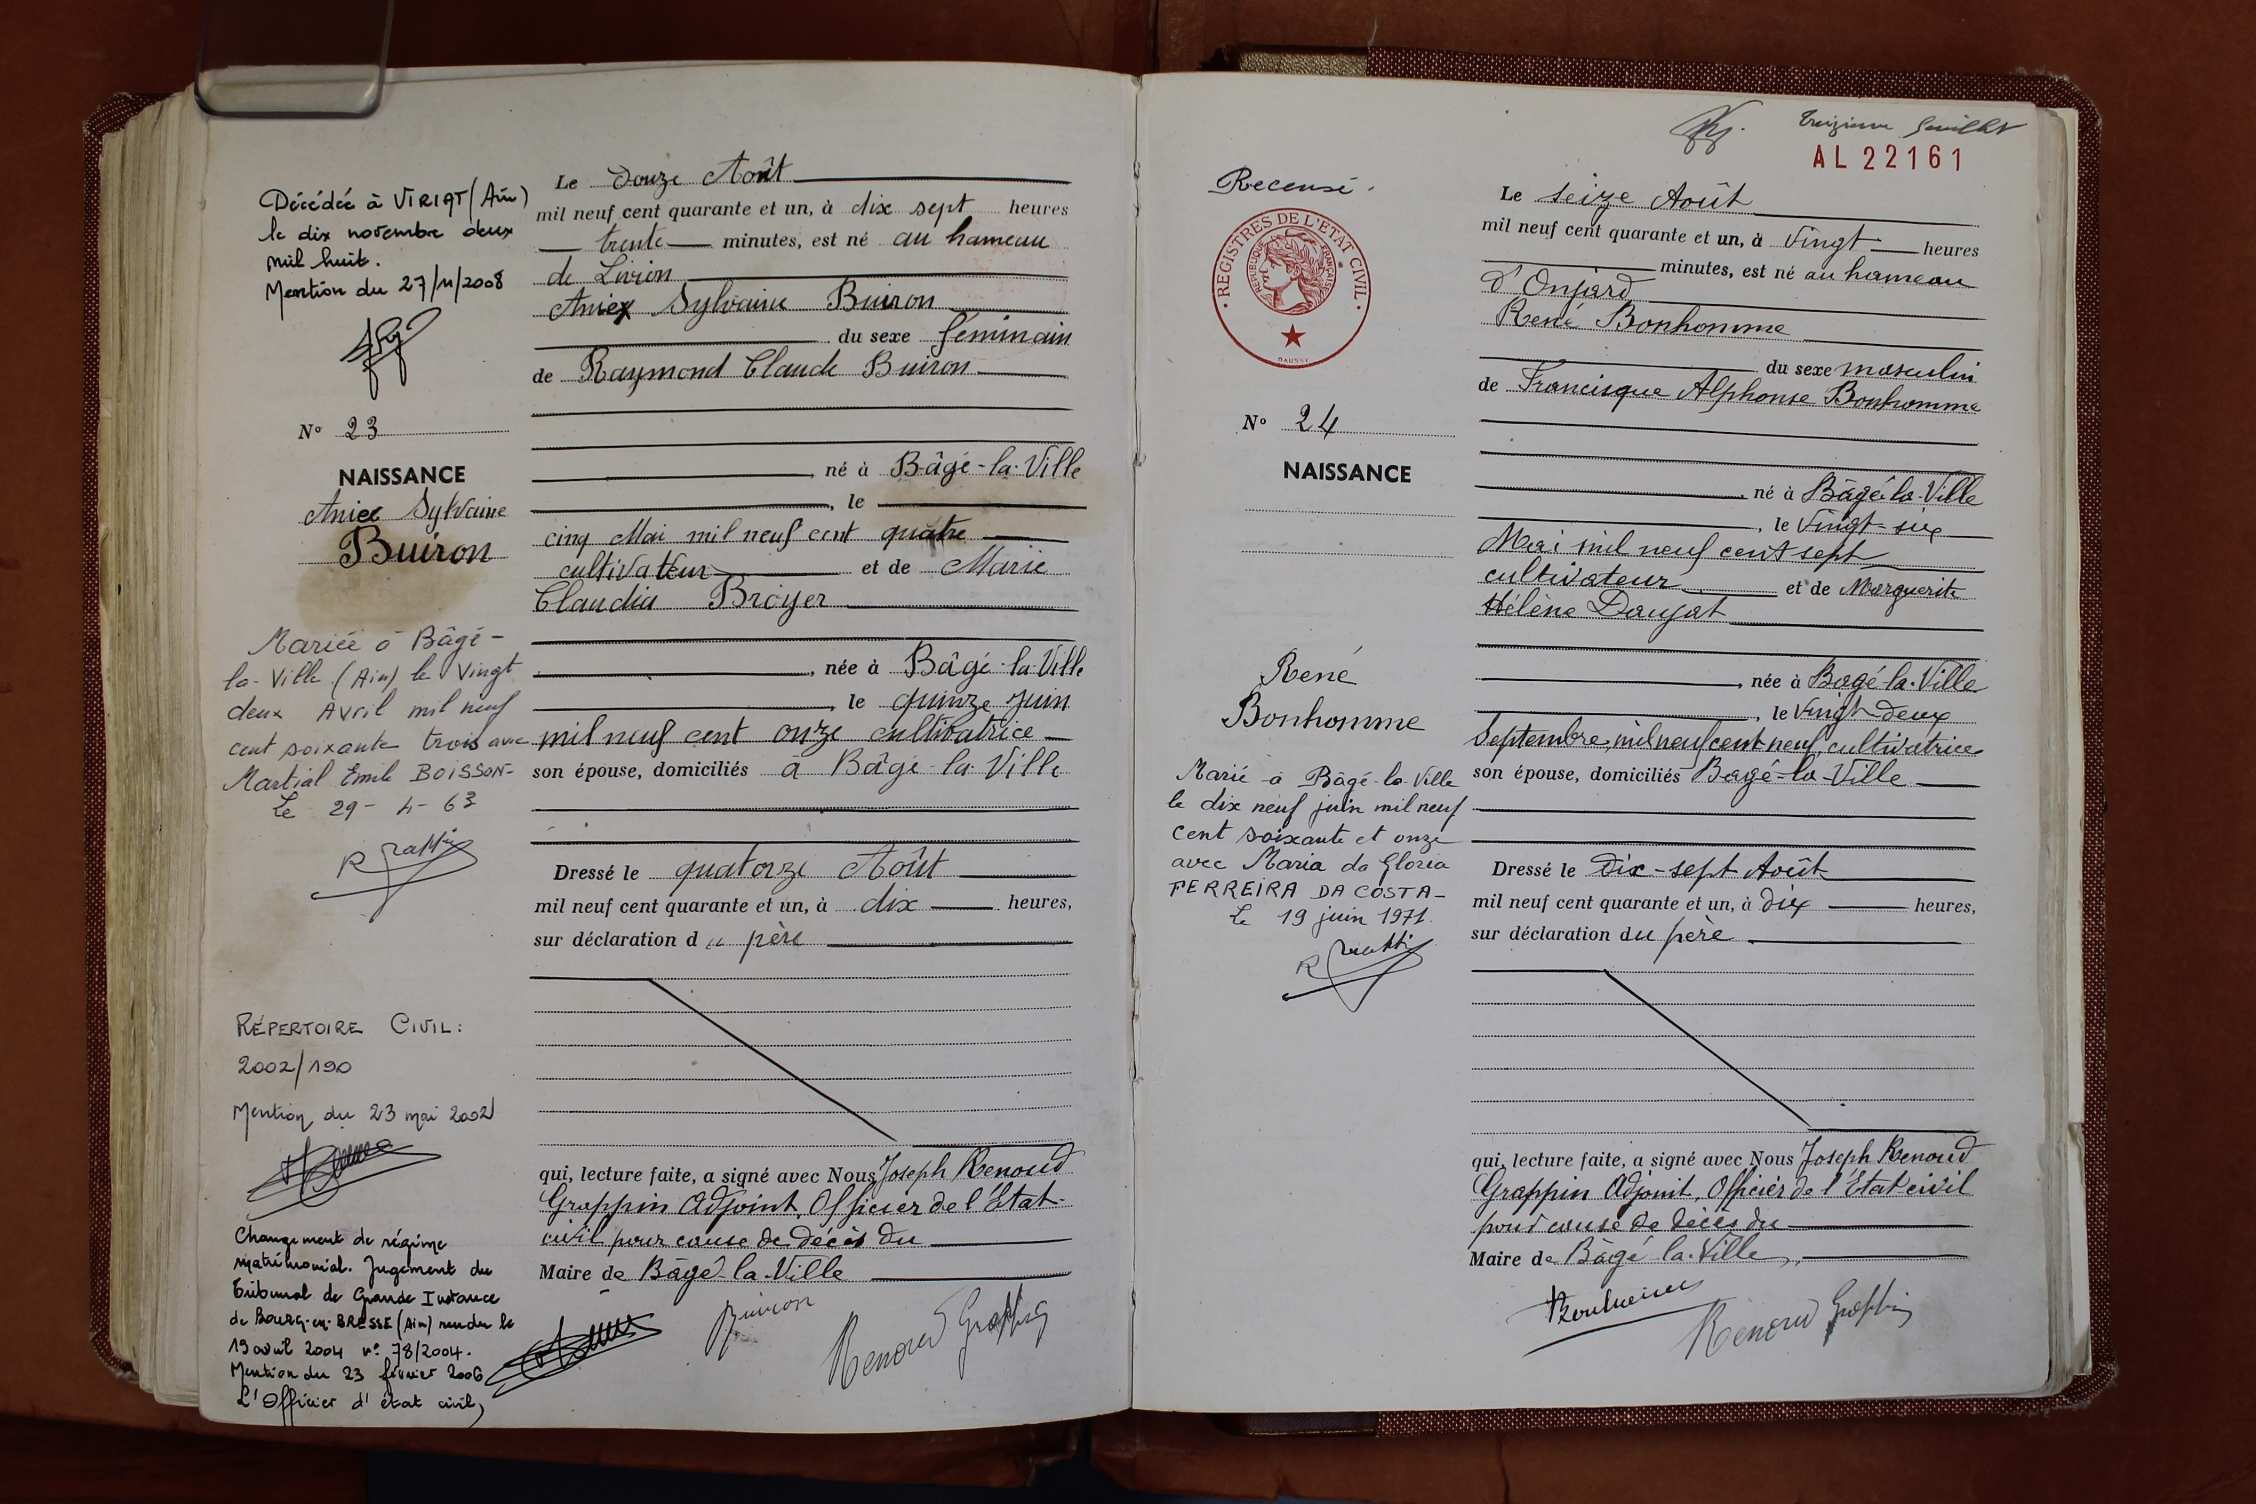 Décédée à VIRIAT (Ain)
le dix novembre deux
mil huit.
Mention du 27/11/2008
N° 23
NAISSANCE
Aniee Sylvaine
Buiron
Mariée à Bâgé-
la-Ville (Ain) le Vingt
deux Avril mil neuf
cent soixante trois avec
Martial Emile BOISSON-
Le 29-4-63
RÉPERTOIRE CIVIL:
2002/190
Mention du 23 mai 2002
Changement de régime
matrimonial. Jugement du
Tribunal de Grande Instance
de BOURG-en-BRESSE (Ain) rendu le
19 avril 2004 n° 78/2004.
Mention du 23 février 2006
L'Officier d'état civil,
Le douze Août
mil neuf cent quarante et un, à dix sept heures
trente minutes, est né au hameau
de Livion
Sylvaine Buiron
du sexe féminin
de Raymond Claude Buiron
né à Bâgé-la-Ville
, le
cinq Mai mil neuf cent quatre
cultivateur et de Marie
Claudia Broyer
, née à Bâgé-la-Ville
, le quinze juin
mil neuf cent onze cultivatrice
son épouse, domiciliés à Bâgé-la-Ville
Dressé le quatorze Août
mil neuf cent quarante et un, à dix heures,
sur déclaration du père
qui, lecture faite, a signé avec Nous Joseph Renoud
Grappin Adjoint, Officier de l'État-
civil pour cause de décès du
Maire de Bâgé-la-Ville
Buiron
Renoud Grappin
treizième feuillet
AL 22161
Recensé.
REGISTRES DE L'ETAT CIVIL
REPUBLIQUE FRANÇAISE
N° 24
NAISSANCE
René
Bonhomme
Marié à Bâgé-la-Ville
le dix neuf juin mil neuf
cent soixante et onze
avec Maria da Gloria
FERREIRA DA COSTA-
Le 19 juin 1971.
Le seize Août
mil neuf cent quarante et un, à vingt heures
minutes, est né au hameau
d'Onjard
René Bonhomme
du sexe masculin
de Francisque Alphonse Bonhomme
, né à Bâgé-la-Ville
, le vingt-six
Mai mil neuf cent sept
cultivateur et de Marguerite
Hélène Daujat
, née à Bagé-la-Ville
, le vingt-deux
Septembre mil neuf cent neuf, cultivatrice
son épouse, domiciliés Bagé-la-Ville
Dressé le Dix-sept Août
mil neuf cent quarante et un, à dix heures,
sur déclaration du père
qui, lecture faite, a signé avec Nous Joseph Renoud
Grappin Adjoint, Officier de l'État civil
pour cause de décès du
Maire de Bâgé-la-Ville,
Renoud Grappin